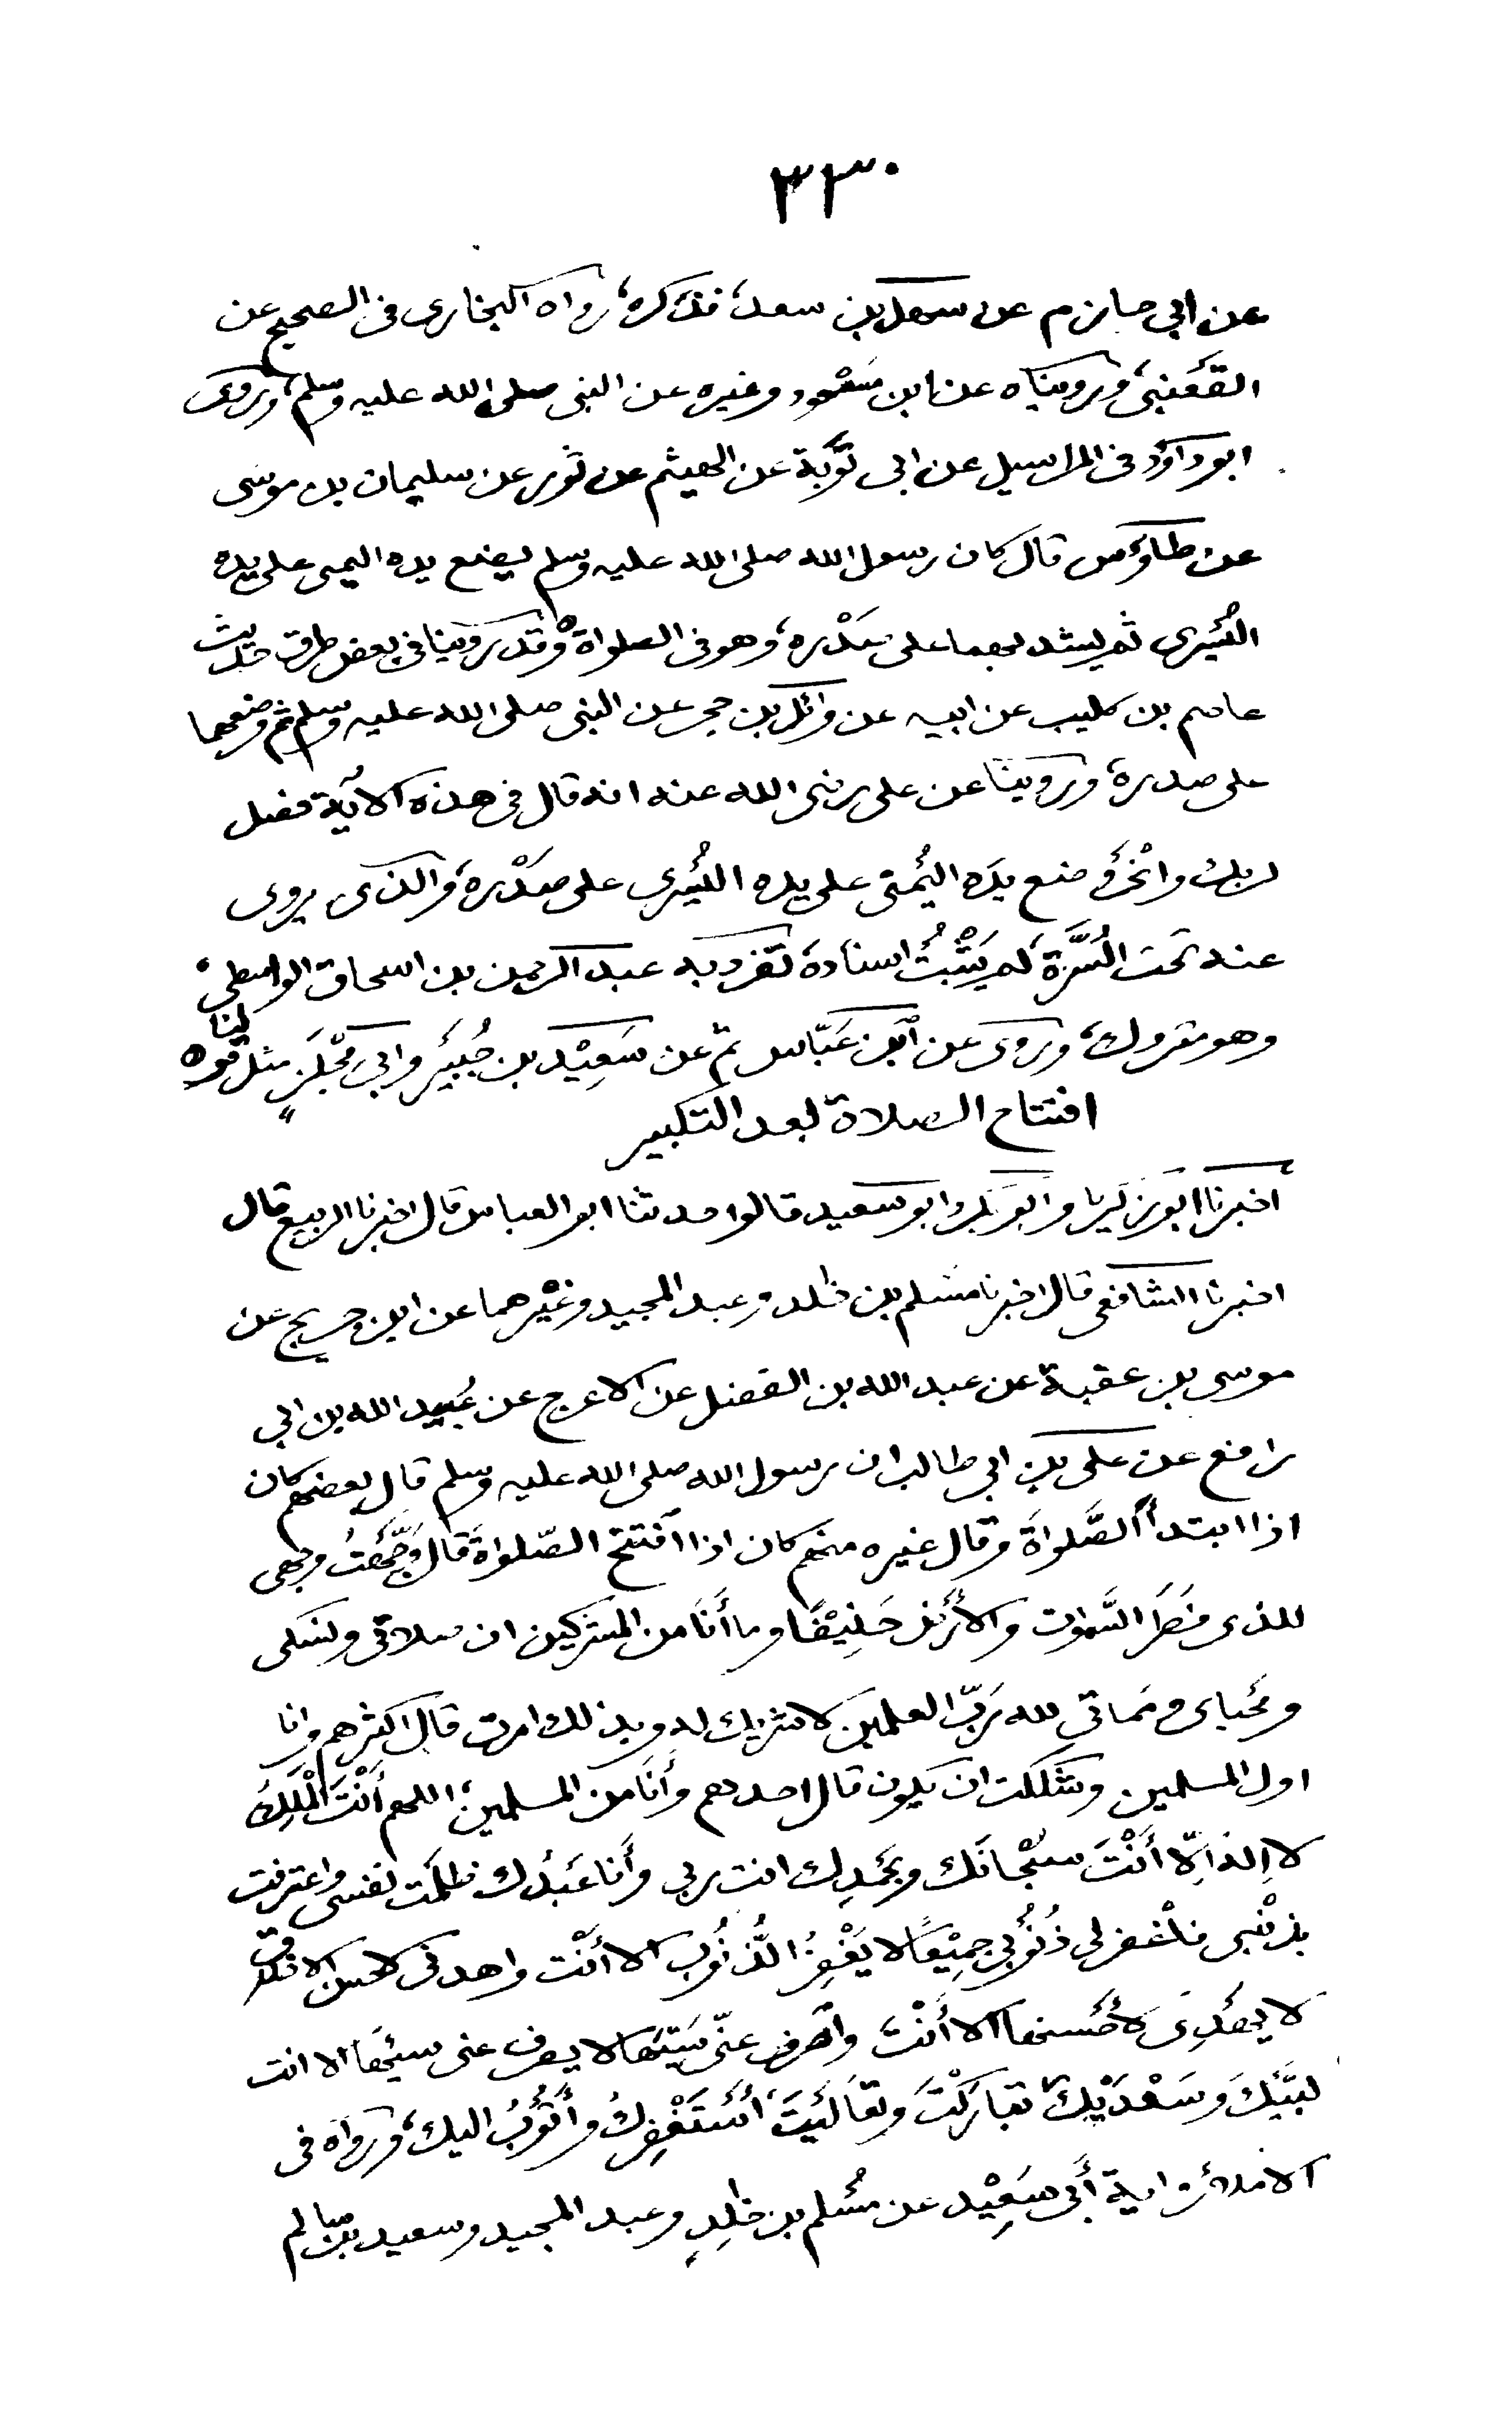 ٣٣٠
عن ابي حازم عن سهل بن سعد، فذكره، رواه البخارى فى الصحيح عن
القَعْنبى، وروينَاه عن ابن مَسْعود وغيره عن النبى صلى الله عليه وسلم، وروى
ابو داؤد فى المراسيل عن ابى تَوْبَة عن الهيثم عن ثور عن سليمان بن موسى
عن طاؤس قال كان رسول الله صلى الله عليه وسلم يضع يده اليمى على يده
اليُسْرى ثم يشد بهما على صَدْره، وهو فى الصلواة، وقد روينا فى بعض طرق حديث
عاصم بن كليب عن ابيه عن وائل بن حجر عن النبى صلى الله عليه وسلم ثم وضعهما
على صدره، وروينا عن على رضى الله عنه انه قال فى هذه الآية فصل
لربك وانْحَرْ وضع يدَه اليُمنى على يده اليُسْرى على صَدْره، والذى يروى
عنه تحت السُّرَّة، لم يَثْبُتُ اسناده، تفرد به عبد الرحمن بن اسحاق الواسطى،
وهو متروك، وروى عن ابن عَبّاس ثم عن سَعِيْد بن جُبَيْر وابى مِجْلَز مثل قولنا
افتتاح الصلاة بعد التكبير
اخبرنا ابو زكريا وابو بكر وابو سعيد قالوا حدثنا ابو العباس قال اخبرنا الربيع قال
اخبرنا الشافعى قال اخبرنا مسلم بن خٰلد وعبد المجيد وغَيْرهما عن ابن جريج عن
موسى بن عقبة عن عبد الله بن الفضل عن الاعرج عن عُبيد الله بن ابى
رافع عن على بن ابى طالب ان رسول الله صلى الله عليه وسلم قال بعضهم كان
اذا ابتدأ الصَّلواةَ وقال غيره منهم كان اذا افتتح الصّلواةَ قال وَجَّهْتُ وجهى
للذى فَطَرَ السَّمٰوٰت والأرْض حَنِيْفًا وما أنَا من المشركين ان صلاتى ونسكى
ومَحياى ومَماتى لله رَبّ العٰلمين لا شريك له وبذلك امرت قال اكثرهم وانا
اول المسلمين وشككت ان يكون قال احدهم وأنَا من المسلمين، اللهم أنْتَ الْمَلِكُ
لا اِلٰه اِلّا أَنْتَ سبْحانَك وبحَمدِك انت ربى وأَنَا عَبْدُك ظلمْت نفسى واعترفت
بذنْبى فاغفر لى ذُنُوْبى جميْعًا لا يَغْفِرُ الذُّنوُب الا أنْتَ واهدنى لاحسن الاخلاق
لا يهْدِى لأحْسنها الا أَنْتَ واصْرف عنّى سَيّئَها لا يصرف عنى سيئها الا انت
لبَيْكَ وَسَعْدَيْكَ تبَارَكْتَ وتعَالَيْتَ، أسْتَغْفِرُكَ وأَتُوْبُ اليك، ورواه فى
الاملاء رواية أَبى سَعِيْد عن مُسْلم بن خٰلِدٍ وعبد المجيد وسعيد بن سالم